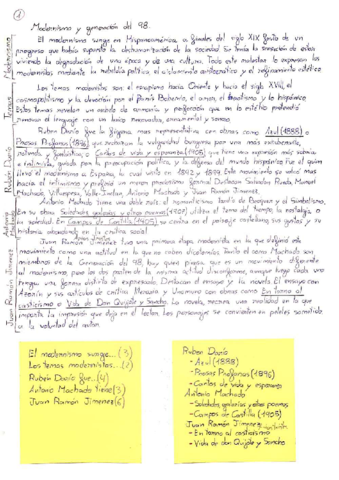 1
Modernismo y generación del 98.
El modernismo surge en Hispanoamérica a finales del siglo XIX fruto de un
progreso que había supuesto la deshumanización de la sociedad. Se tenía la sensación de estar
viviendo la degradación de una época y de una cultura. Todo este malestar lo expresan los
modernistas mediante la rebeldía política, el aislamiento aristocrático y el refinamiento estético.
Los temas modernistas son el escapismo hacia Oriente y hacia el siglo XVIII, el
cosmopolitismo y la devoción por el París Bohemio, el amor, el erotismo y lo hispánico.
Estos temas revelan un anhelo de armonía y perfección que en lo estético pretendió
renovar el lenguaje con un léxico renovador, ornamental y sonoro.
Rubén Darío fue la figura más representativa con obras como Azul (1888) o
Prosas Profanas (1896) que rechazan la vulgaridad burguesa por una más exuberante,
colorida y fantástica, o Cantos de vida y esperanza (1905) que tiene una expresión más íntima
e reflexiva, guiada por la preocupación política, y la defensa del mundo hispánico. Fue él quien
llevó el modernismo a España, la cual visitó en 1892 y 1899. Este movimiento se abrió más
hacia el intimismo y prefirió un menor preciosismo formal. Destacan Salvador Rueda, Manuel
Machado, Villaespesa, Valle-Inclán, Antonio Machado y Juan Ramón Jiménez.
Antonio Machado tiene una doble raíz: el romanticismo tardío de Bécquer y el Simbolismo.
En su obra Soledades, galerías y otros poemas (1907) aluden el tema del tiempo, la nostalgia, o
En Campos de Castilla (1905) se centra en el paisaje castellano, sus gentes y su
historia ahondando en la crítica social.
Juan Ramón Jiménez tuvo una primera etapa modernista en la que definió este
movimiento como una actitud en la que no caben diccionarios. Tanto él como Machado son
miembros de la Generación del 98, hay quien piensa que es un movimiento diferente
al modernismo, pero las dos parten de la misma actitud disconforme, aunque luego cada uno
tengan una forma distinta de expresarla. Destacan el ensayo y la novela. El ensayo con
Azorín y sus artículos de crítica literaria y Unamuno con obras como En torno al
casticismo o Vida de Don Quijote y Sancho. La novela, recrea una realidad en la que
importa la impresión que deja en el lector. Los personajes se convierten en peleles sometidos
a la voluntad del autor.
Modernismo
Temas
Rubén Darío
Antonio Machado
Juan Ramón Jiménez
El modernismo surge...(3)
Los temas modernistas...(2)
Rubén Darío fue...(4)
Antonio Machado tiene(3)
Juan Ramón Jiménez(6)
Rubén Darío
- Azul (1888)
- Prosas Profanas (1896)
- Cantos de vida y esperanza
Antonio Machado
- Soledades, galerías y otros poemas
- Campos de Castilla (1905)
Juan Ramón Jiménez
- En torno al casticismo
- Vida de Don Quijote y Sancho